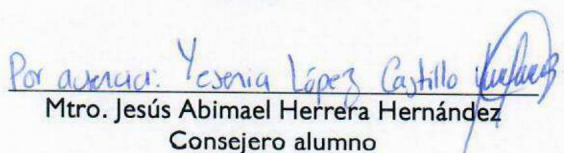 Por ausencia: Yesenia López Castillo
Mtro. Jesús Abimael Herrera Hernández
Consejero alumno